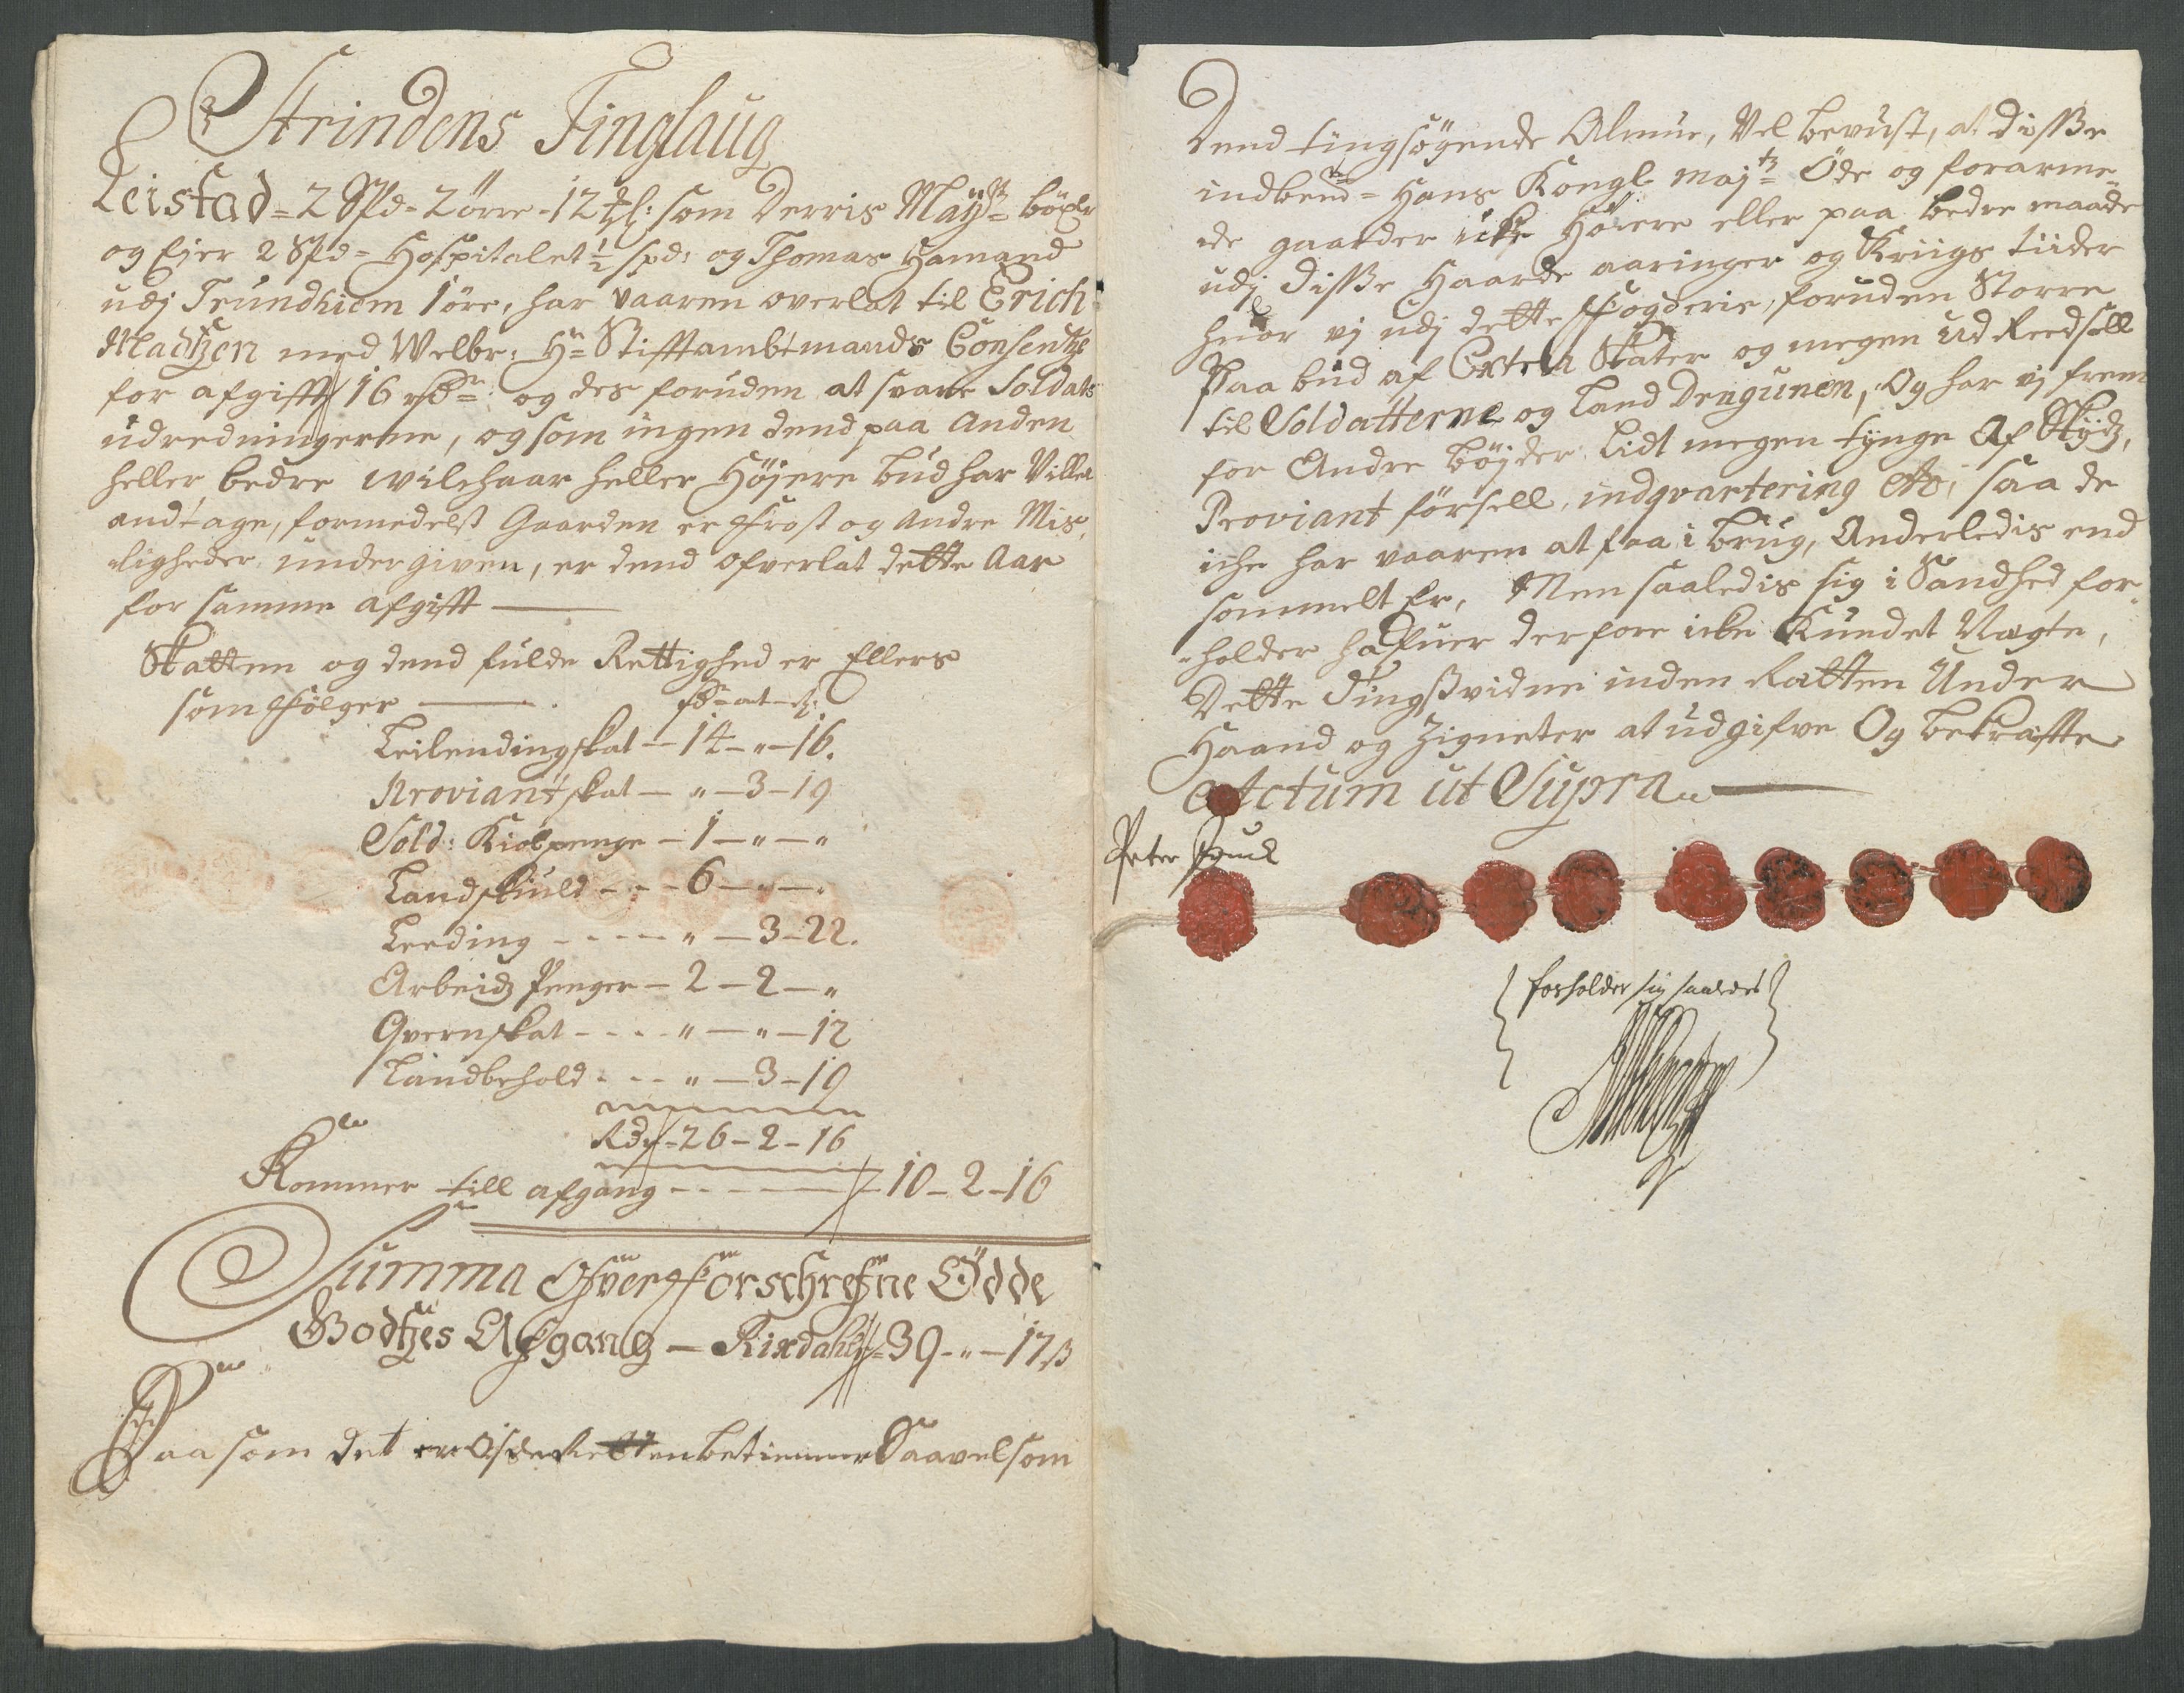 Strindens Tinglaug
Leistad = 2 Spd = 2 örre - 12 ₰: som Derris Maÿtz böxler
og Ejer 2 Spd = Hospitalet ½ spd: og Thomas Hamand
udj Trundhiem 1 öre, har vaaren overlat til Erich
Madtzen med Welbr: Hr Stifftambtmands Consentze
for afgifft 16 rdr: og des foruden at svare Soldats
udredningerne, og som ingen dend paa Anden
heller bedre wilchaar heller Höjere bud har Villet
andtage, formedelst Gaarden er Frost og Andre Mis,
ligheder undergiven, er dend ofverlat dette Aar
for samme afgifft
Skatten og dend fulde Rettighed er Ellers
som Fölger
Leilendingskat - 14 - " - 16.
Proviantskat - " - 3 - 19
Sold: Kiolpenge - 1 - " - "
Landskuld - - - 6 - " - "
Leeding - - - - " - 3 - 22.
Arbeidz Penger - 2 - 2 - "
Qvernskat - - - - " - " - 12
Landbehold - - - " - 3 - 19
Rdr - 26 - 2 - 16
Kommer till afgang - - - - - 10 - 2 - 16
Summa Ofver Forschrefne Ödde
Godtzes Afgang - Rixdahlr 39 - " - 17 ß
Saasom det er os Retten betiener Saavelsom
Dend tingsögende Almue, Vel bevust, at disse
indbemte Hans Kongl. Majtz Öde og forarme,
de gaarder icke Höiere eller paa bedre maade
udj disse Haarde aaringer og Kriigs tiider
huor vj udj dette Fogderie, foruden Storre
Paa bud af Extra Skater og megen ud Reedsell
til Soldatterne og Land Dragunen, Og har vj frem
for Andre böjder Lidt megen tynge Af Skydz,
Proviant försell, indqvartering etc, saa de
iche har vaaren at faa i brug, Anderledis end
sommelt Er, Men saaledis sig i Sandhed for,
holder hafuer derfore icke Kundet Nægte,
Dette Tingsvidne inden Retten Under
Haand og Zigneter at udgifve Og bekraffte
Actum ut Supra
Peter
forholder sig saaledes